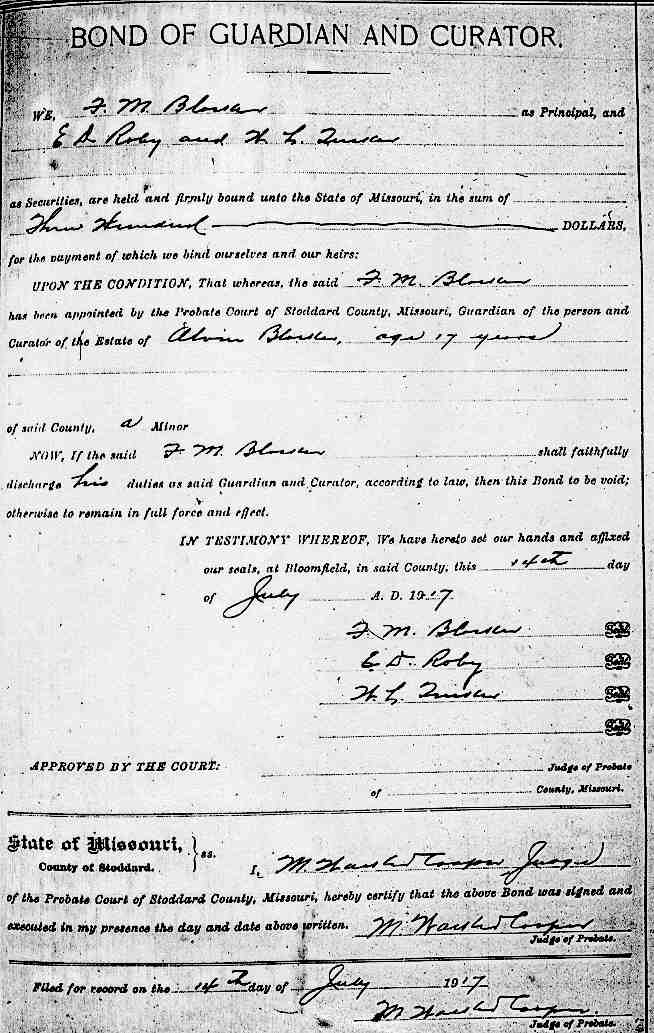 BOND OF GUARDIAN AND CURATOR.
WE, F. M. Blosser as Principal, and
E D. Roby and H L.
as Securities, are held and firmly bound unto the State of Missouri, in the sum of
Three Hundred DOLLARS,
for the payment of which we bind ourselves and our heirs:
UPON THE CONDITION, That whereas, the said F. M. Blosser
has been appointed by the Probate Court of Stoddard County, Missouri, Guardian of the person and
Curator of the Estate of Alvin Blosser, age 17 years
of said County, a Minor
NOW, If the said F. M. Blosser shall faithfully
discharge his duties as said Guardian and Curator, according to law, then this Bond to be void;
otherwise to remain in full force and effect.
IN TESTIMONY WHEREOF, We have hereto set our hands and affixed
our seals, at Bloomfield, in said County, this 14th day
of July A. D. 1917.
F. M. Blosser Seal
E. D. Roby Seal
H. L. Seal
Seal
APPROVED BY THE COURT: Judge of Probate
of County, Missouri.
State of Missouri, } ss.
County of Stoddard.
I, M Cooper Judge
of the Probate Court of Stoddard County, Missouri, hereby certify that the above Bond was signed and
executed in my presence the day and date above written. M Cooper
Judge of Probate.
Filed for record on the 14th day of July 1917
M Cooper.
Judge of Probate.